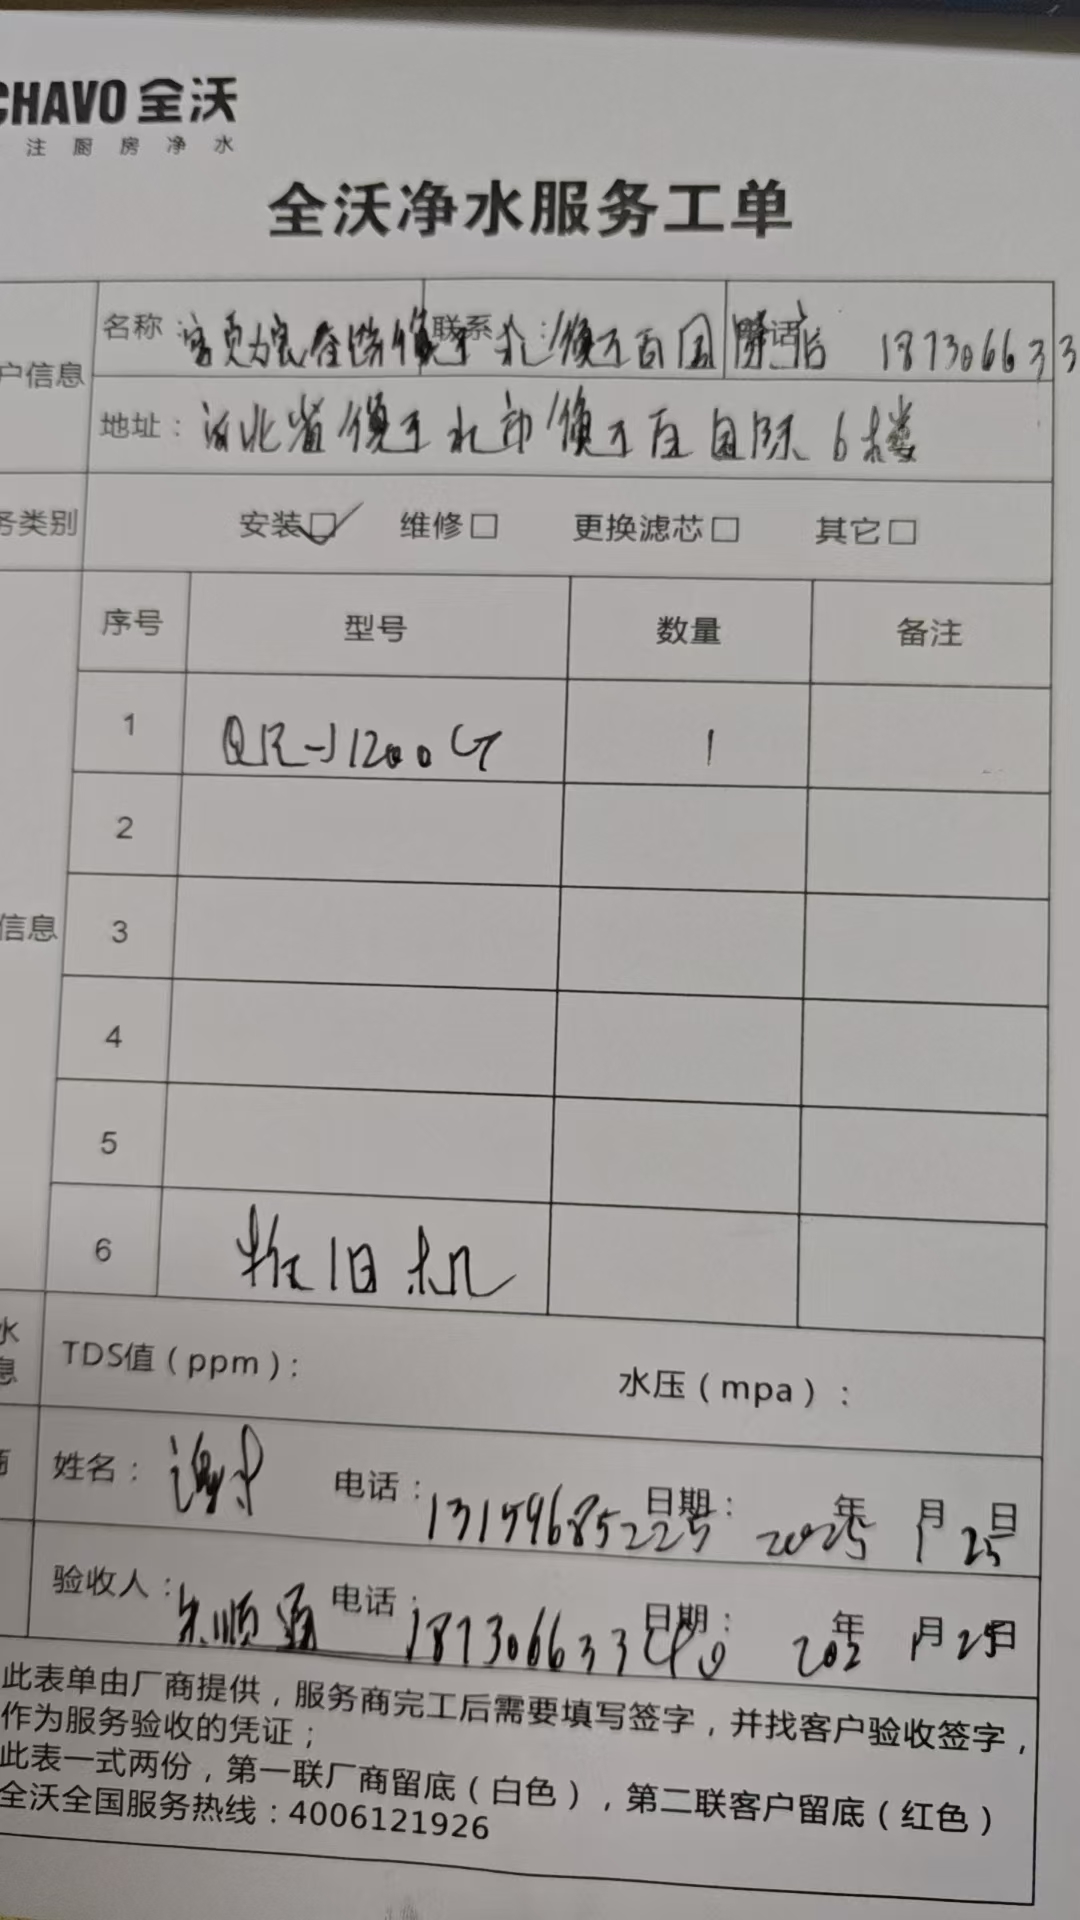 CHAVO 全沃
注厨房净水
全沃净水服务工单
户信息
名称： 联系： 电话 187306633
地址：河北省衡水市 国际6楼
务类别 安装☑ 维修□ 更换滤芯□ 其它□
序号 型号 数量 备注
1 QR-J1200G 1
2
信息 3
4
5
6 拆旧机
水 息 TDS值（ppm）： 水压（mpa）：
商 姓名： 电话：13159685225 日期：2025年1月25日
验收人： 顺通 电话：187306633 日期：202 年1月25日
此表单由厂商提供，服务商完工后需要填写签字，并找客户验收签字，
作为服务验收的凭证；
此表一式两份，第一联厂商留底（白色），第二联客户留底（红色）
全沃全国服务热线：4006121926